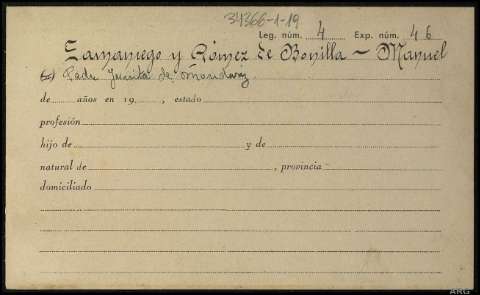 34366-1-19
Leg. núm. 4 Exp. núm. 46
Samaniego y Gómez de Bonilla - Manuel
(a) Padre Jesuita de
de años en 19 , estado
profesión
hijo de y de
natural de , provincia
domiciliado
ARG